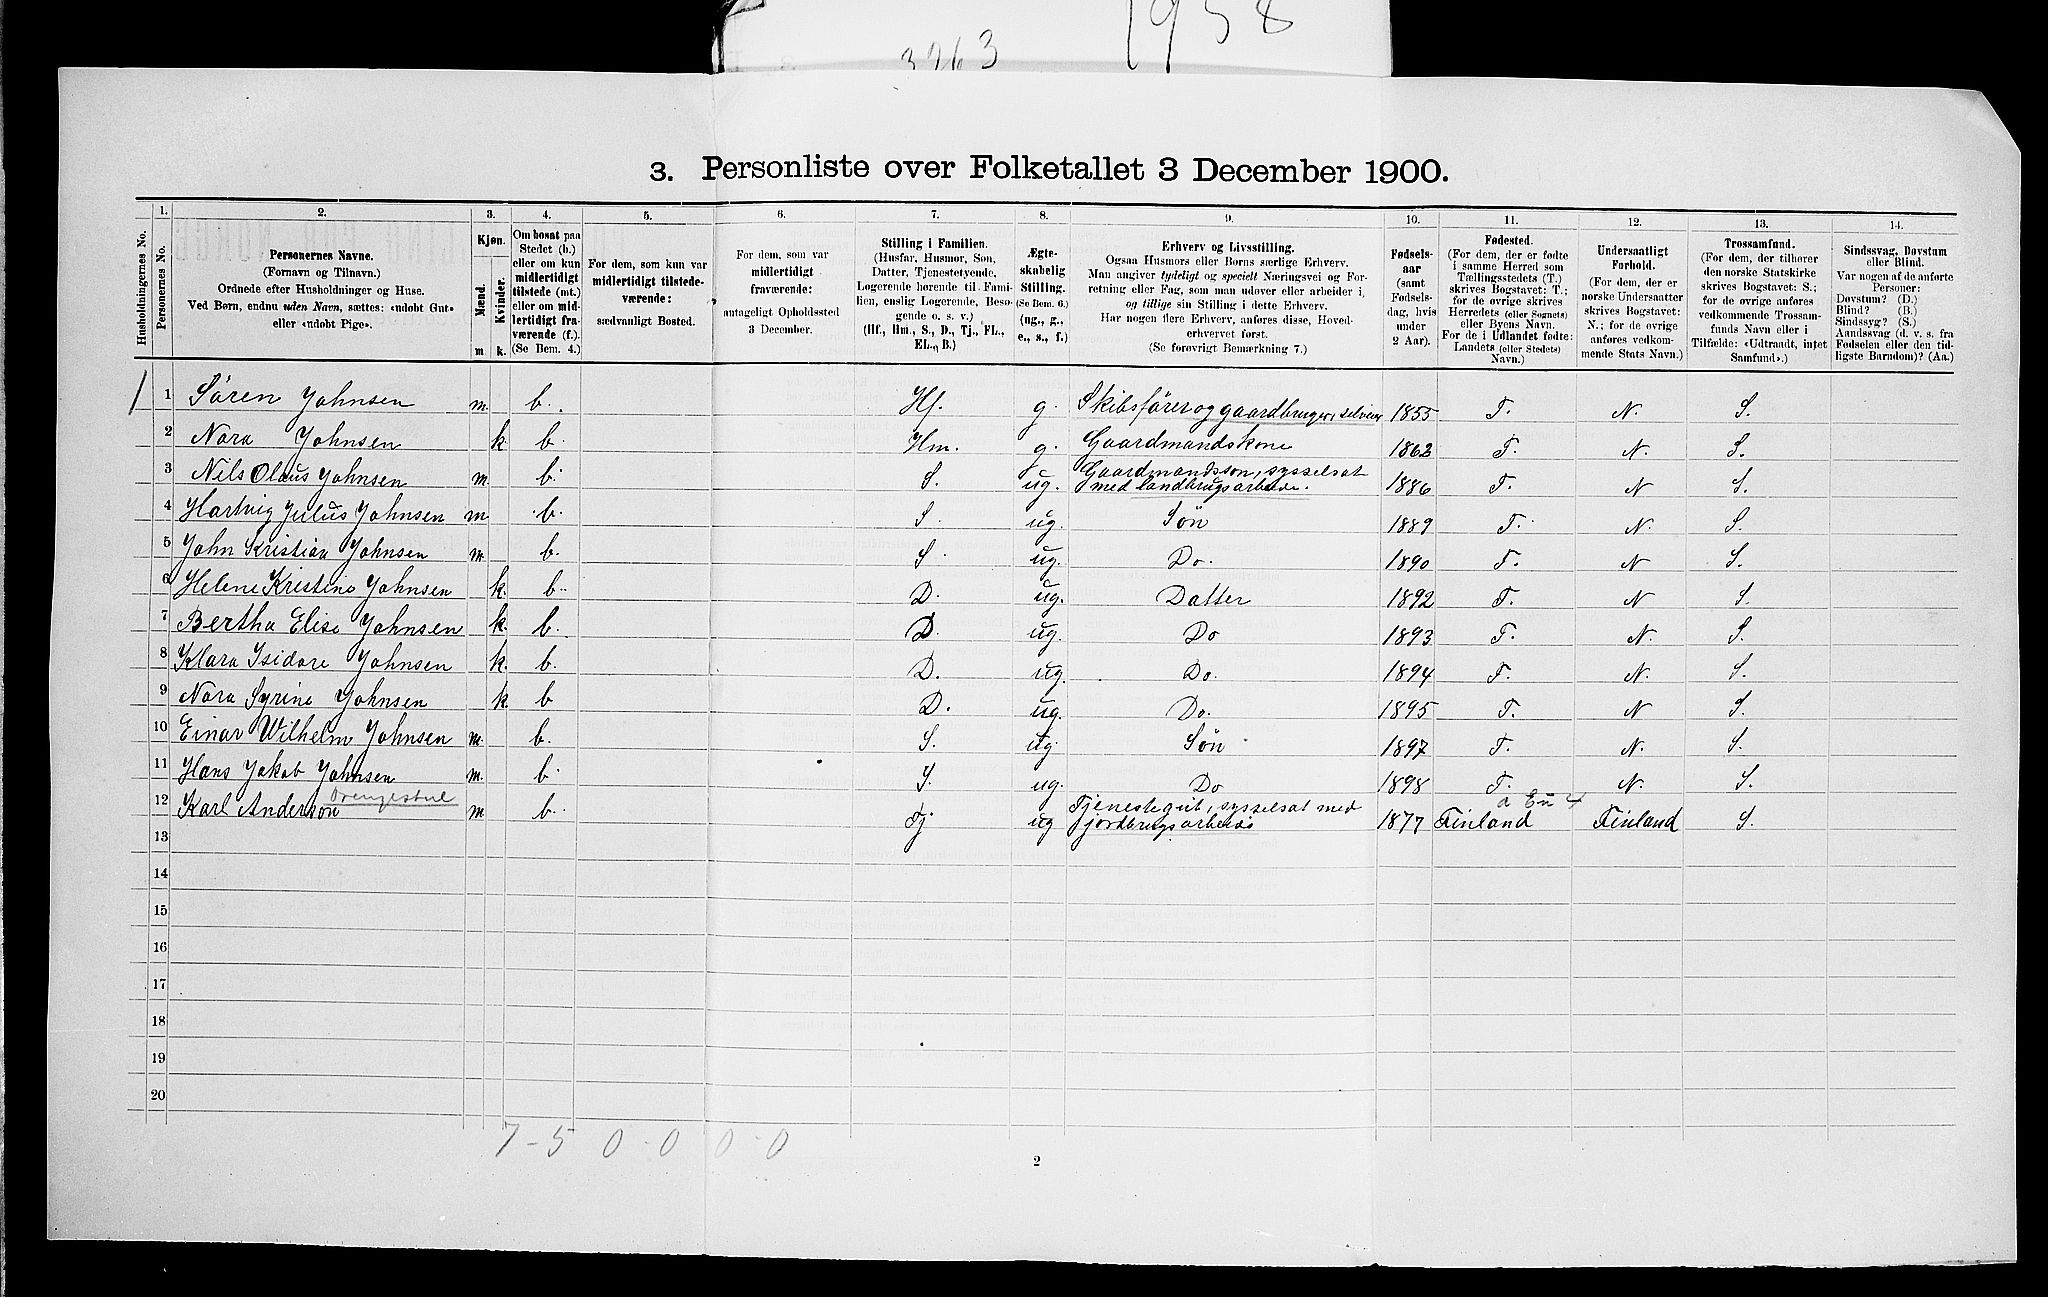 1958
3263
3. Personliste over Folketallet 3 December 1900.
1. 2. 3. 4. 5. 6. 7. 8. 9. 10. 11. 12. 13. 14.
Husholdningernes No.
Personernes No.
Personernes Navne.
(Fornavn og Tilnavn.)
Ordnede efter Husholdninger og Huse.
Ved Børn, endnu uden Navn, sættes: «udøbt Gut»
eller «udøbt Pige».
Kjøn.
Mænd.
Kvinder.
m k.
Om bosat paa
Stedet (b.)
eller om kun
midlertidigt
tilstede (mt.)
eller om mid-
lertidigt fra-
værende (f.).
(Se Bem. 4.)
For dem, som kun var
midlertidigt tilstede-
værende:
sædvanligt Bosted.
For dem, som var
midlertidigt
fraværende:
antageligt Opholdssted
3 December.
Stilling i Familien.
(Husfar, Husmor, Søn,
Datter, Tjenestetyende,
Logerende hørende til Fami-
lien, enslig Logerende, Besø-
gende o. s. v.)
(Hf., Hm., S., D., Tj., FL.,
EL., B.)
Ægte-
skabelig
Stilling.
(Se Bem. 6.)
(ug., g.,
e., s., f.)
Erhverv og Livsstilling.
Ogsaa Husmors eller Børns særlige Erhverv.
Man angiver tydeligt og specielt Næringsvei og For-
retning eller Fag, som man udøver eller arbeider i,
og tillige sin Stilling i dette Erhverv.
Har nogen flere Erhverv, anføres disse, Hoved-
erhvervet først.
(Se forøvrigt Bemærkning 7.)
Fødsels-
aar
(samt
Fødsels-
dag, hvis
under
2 Aar).
Fødested.
(For dem, der er fødte
i samme Herred som
Tællingsstedets (T.)
skrives Bogstavet: T.;
for de øvrige skrives
Herredets (eller Sognets)
eller Byens Navn.
For de i Udlandet fødte:
Landets (eller Stedets)
Navn.)
Undersaatligt
Forhold.
(For dem, der er
norske Undersaatter
skrives Bogstavet:
N.; for de øvrige
anføres vedkom-
mende Stats Navn.)
Trossamfund.
(For dem, der tilhører
den norske Statskirke
skrives Bogstavet: S.;
for de øvrige anføres
vedkommende Trossam-
funds Navn eller i
Tilfælde: «Udtraadt, intet
Samfund».)
Sindssvag, Døvstum
eller Blind.
Var nogen af de anførte
Personer:
Døvstum? (D.)
Blind? (B.)
Sindssyg? (S.)
Aandssvag (d. v. s. fra
Fødselen eller den tid-
ligste Barndom)? (Aa.)
1 1 Sören Johnsen m. b. Hf. g. Skibsförer og gaardbruger, selveier 1855 T. N. S.
2 Nora Johnsen k. b. Hm. g. Gaardmandskone 1862 T. N. S.
3 Nils Olaus Johnsen m b. S. ug. Gaardmandsson, sysselsat
med landbrugsarbeide. 1886 T. N S.
4 Hartvig Julus Johnsen m b. S. ug. Søn 1889 T. N. S.
5 John Kristian Johnsen m. b. S ug. Do. 1890 T. N S.
6 Helene Kristine Johnsen k. b. D. ug. Datter 1892 T. N S.
7 Bertha Elise Johnsen k. b. D. ug. Do 1893 T. N. S.
8 Klara Isidore Johnsen k. b. D. ug. Do. 1894 T. N. S.
9 Nora Syrine Johnsen k. b D. ug. Do. 1895 T. N S.
10 Einar Wilhelm Johnsen m. b. S. ug. Søn 1897 T. N. S.
11 Hans Jakob Johnsen m. b. S. ug. Do 1898 T. N. S.
12 Karl Anderson m b. Tj ug Tjenestegut, sysselsat med
jordbrugsarbeide 1877 Finland Finland S.
13
14
15
16
17
18
19
20
7-5 0-0 0-0
2